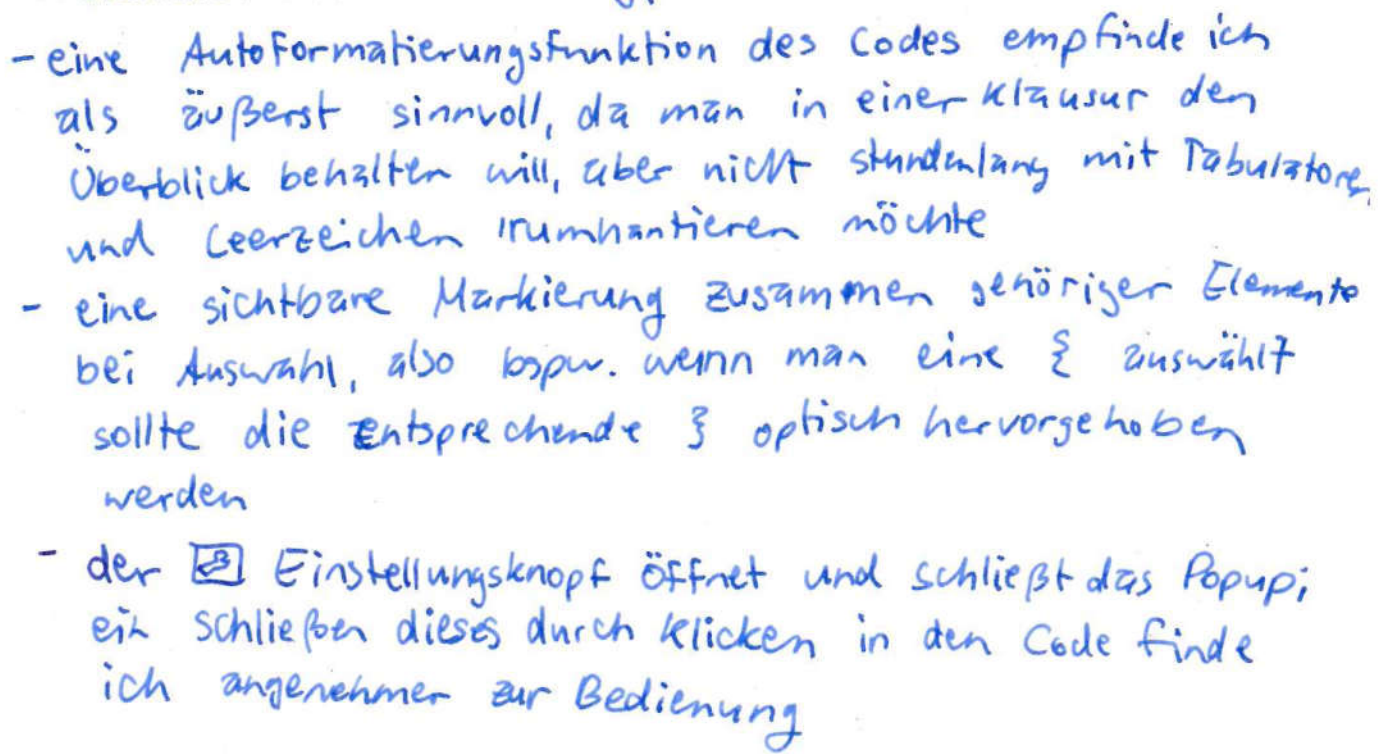 - eine Autoformatierungsfunktion des Codes empfinde ich
als äußerst sinnvoll, da man in einer Klausur den
Überblick behalten will, aber nicht stundenlang mit Tabulatoren
und Leerzeichen rumhantieren möchte
- eine sichtbare Markierung zusammen gehöriger Elemente
bei Auswahl, also bspw. wenn man eine { auswählt
sollte die entsprechende } optisch hervorgehoben
werden
- der Einstellungsknopf öffnet und schließt das Popup;
ein schließen dieses durch klicken in den Code finde
ich angenehmer zur Bedienung